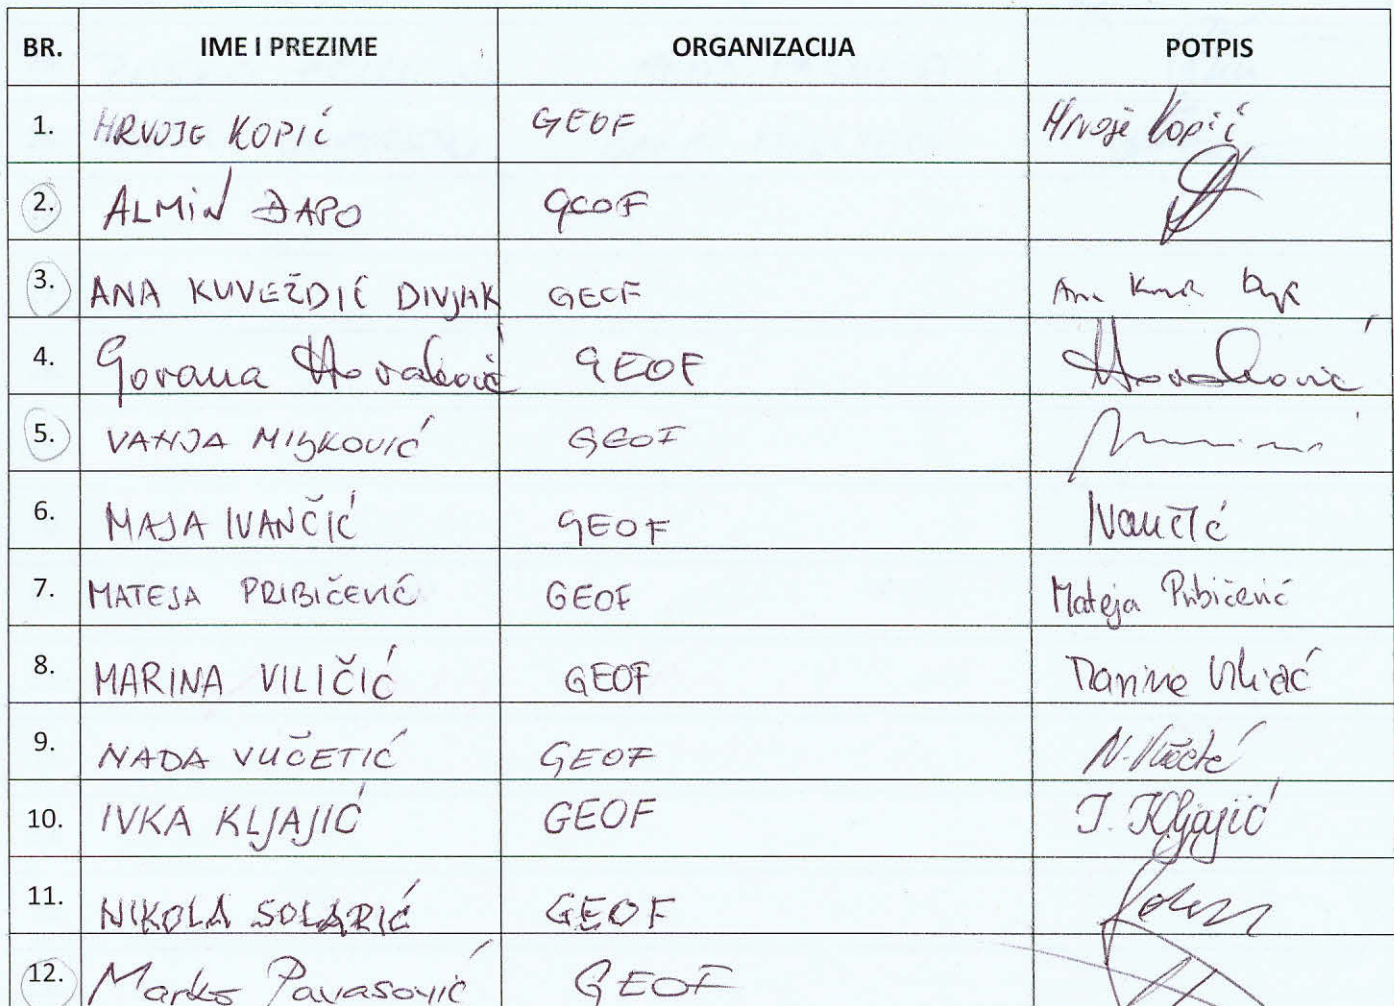 BR. IME I PREZIME ORGANIZACIJA POTPIS
1. HRVOJE KOPIĆ GEOF Hrvoje Kopić
2. ALMIN ĐAPO GEOF
3. ANA KUVEŽDIĆ DIVJAK GEOF Ana
4. Gorana Horaković GEOF Horaković
5. VANJA MIŠKOVIĆ GEOF
6. MAJA IVANČIĆ GEOF Ivančić
7. MATEJA PRIBIČEVIĆ GEOF Mateja Pribičević
8. MARINA VILIČIĆ GEOF Marina Viličić
9. NADA VUČETIĆ GEOF N. Vučetić
10. IVKA KLJAJIĆ GEOF I. Kljajić
11. NIKOLA SOLARIĆ GEOF
12. Marko Pavasović GEOF